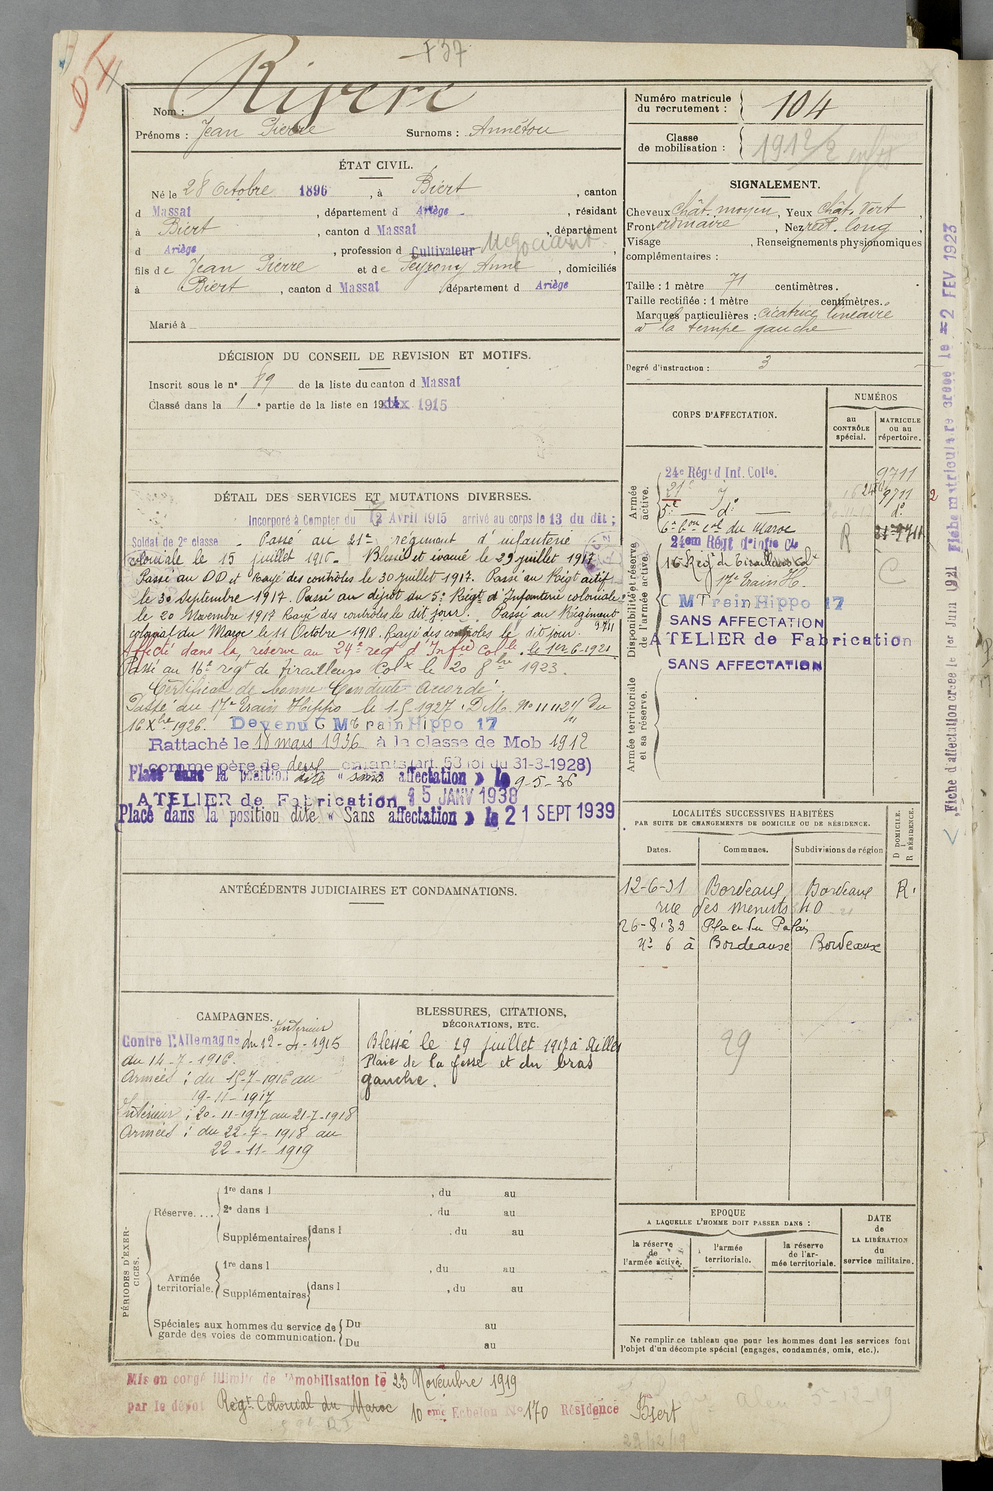 F 37
DI
Nom : Rivere
Prénoms : Jean Pierre Surnoms : Annétou
Numéro matricule du recrutement : 104
Classe de mobilisation : 1912
ÉTAT CIVIL.
Né le 28 Octobre 1896, à Biert, canton
d Massat, département d Ariège, résidant
à Biert, canton d Massat, département
d Ariège, profession d Cultivateur Négociant
fils de Jean Pierre et de Peyrony Anne, domiciliés
à Biert, canton d Massat département d Ariège
Marié à
SIGNALEMENT.
Cheveux chât. moyen, Yeux chât. Vert,
Front ordinaire, Nez rect. long,
Visage , Renseignements physionomiques
complémentaires :
Taille : 1 mètre 71 centimètres.
Taille rectifiée : 1 mètre centimètres.
Marques particulières : cicatrice linéaire
à la tempe gauche
Degré d'instruction : 3
DÉCISION DU CONSEIL DE REVISION ET MOTIFS.
Inscrit sous le n° 89 de la liste du canton d Massat
Classé dans la 1e partie de la liste en 1915
DÉTAIL DES SERVICES ET MUTATIONS DIVERSES.
Incorporé à Compter du 12 Avril 1915 arrivé au corps le 13 du dit ;
Soldat de 2e classe. Passé au 21e régiment d'infanterie
coloniale le 15 juillet 1916. Blessé et évacué le 29 juillet 1917
Passé au DD et Rayé des contrôles le 30 juillet 1917. Passé au Régt actif
le 30 Septembre 1917. Passé au dépôt du 5e Régt d'Infanterie coloniale
le 20 Novembre 1917 Rayé des contrôles le dit jour. Passé au Régiment
colonial du Maroc le 11 Octobre 1918. Rayé des contrôles le dit jour.
Affecté dans la réserve au 24e régt d'Infie colle le 1er 6.1921
Passé au 16e régt de tirailleurs Colx le 20 8bre 1923.
Certificat de bonne Conduite Accordé.
Passé au 17e Train Hippo le 1.5 1927 (D.M. No 11112 7/11 du
16 Xbre 1926. Devenu C Mt rain Hippo 17
Rattaché le 18 mars 1936 à la classe de Mob 1912
comme père de deux enfants (art. 58 loi du 31-3-1928)
Placé dans la position dite « sans affectation » le 9-5-36
ATELIER de Fabrication 15 JANV 1938
Placé dans la position dite « Sans affectation » le 21 SEPT 1939
CORPS D'AFFECTATION.
NUMÉROS
au CONTRÔLE spécial.
MATRICULE ou au répertoire.
Armée active.
24e Régt d Inf. Colle. 9711
21e d° 9711
5e d° d°
6e Con col du Maroc
Disponibilité et réserve de l'armée active.
24em Régt d'Infie Cle R
16 Rég. de tirailleurs colx
17e Train H. C
C MT rain Hippo 17
SANS AFFECTATION
ATELIER de Fabrication
SANS AFFECTATION
Armée territoriale et sa réserve.
Fiche d'affectation créée le 1er Juin 1921 Fiche matriculaire créée le 2 FEV 1923
LOCALITÉS SUCCESSIVES HABITÉES
PAR SUITE DE CHANGEMENTS DE DOMICILE OU DE RÉSIDENCE.
Dates. Communes. Subdivisions de région
D DOMICILE. R RÉSIDENCE.
12-6-31 Bordeaux Bordeaux R.
rue des menuts 40
26-8-39 Place du Palais
n° 6 à Bordeaux Bordeaux
29
ANTÉCÉDENTS JUDICIAIRES ET CONDAMNATIONS.
CAMPAGNES.
Intérieur
Contre l'Allemagne du 12-4-1915
du 14-7-1916.
Armées : du 15-7-1916 au
19-11-1917
Intérieur : 20-11-1917 au 21-7-1918
Armées : du 22-7-1918 au
22-11-1919
BLESSURES, CITATIONS,
DÉCORATIONS, ETC.
Blessé le 29 juillet 1917 à Ailles
Plaie de la fesse et du bras
gauche.
PÉRIODES D'EXERCICES.
Réserve....
1re dans l , du au
2e dans l , du au
Supplémentaires dans l , du au
Armée territoriale.
1re dans l , du au
Supplémentaires dans l , du au
Spéciales aux hommes du service de garde des voies de communication.
Du au
Du au
EPOQUE
A LAQUELLE L'HOMME DOIT PASSER DANS :
la réserve de l'armée active.
l'armée territoriale.
la réserve de l'armée territoriale.
DATE de LA LIBÉRATION du service militaire.
Ne remplir ce tableau que pour les hommes dont les services font
l'objet d'un décompte spécial (engagés, condamnés, omis, etc.).
Mis en congé illimité de démobilisation le 23 Novembre 1919
par le dépôt Régt Colonial du Maroc 10 eme Echelon No 170 Résidence Biert